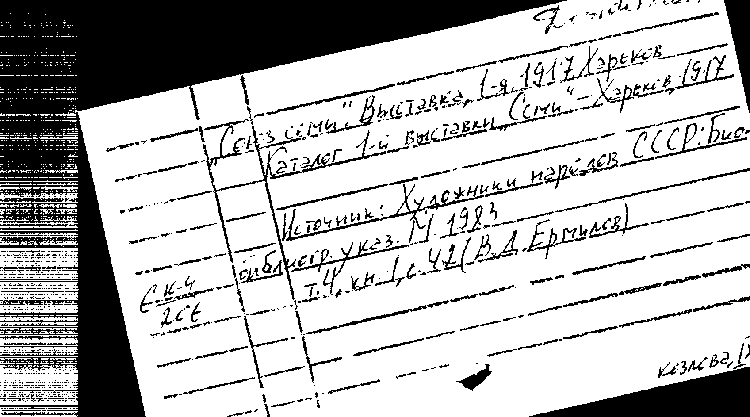 „Союз семи". Выставка, 1-я. 1917. Харьков
Каталог 1-й выставки „Семи" – Харьков, 1917
Источник: Художники народов СССР: Био-
библиогр. указ. М. 1983
т.4, кн. 1, с. 42 (В.Д. Ермилов)
Козлова,